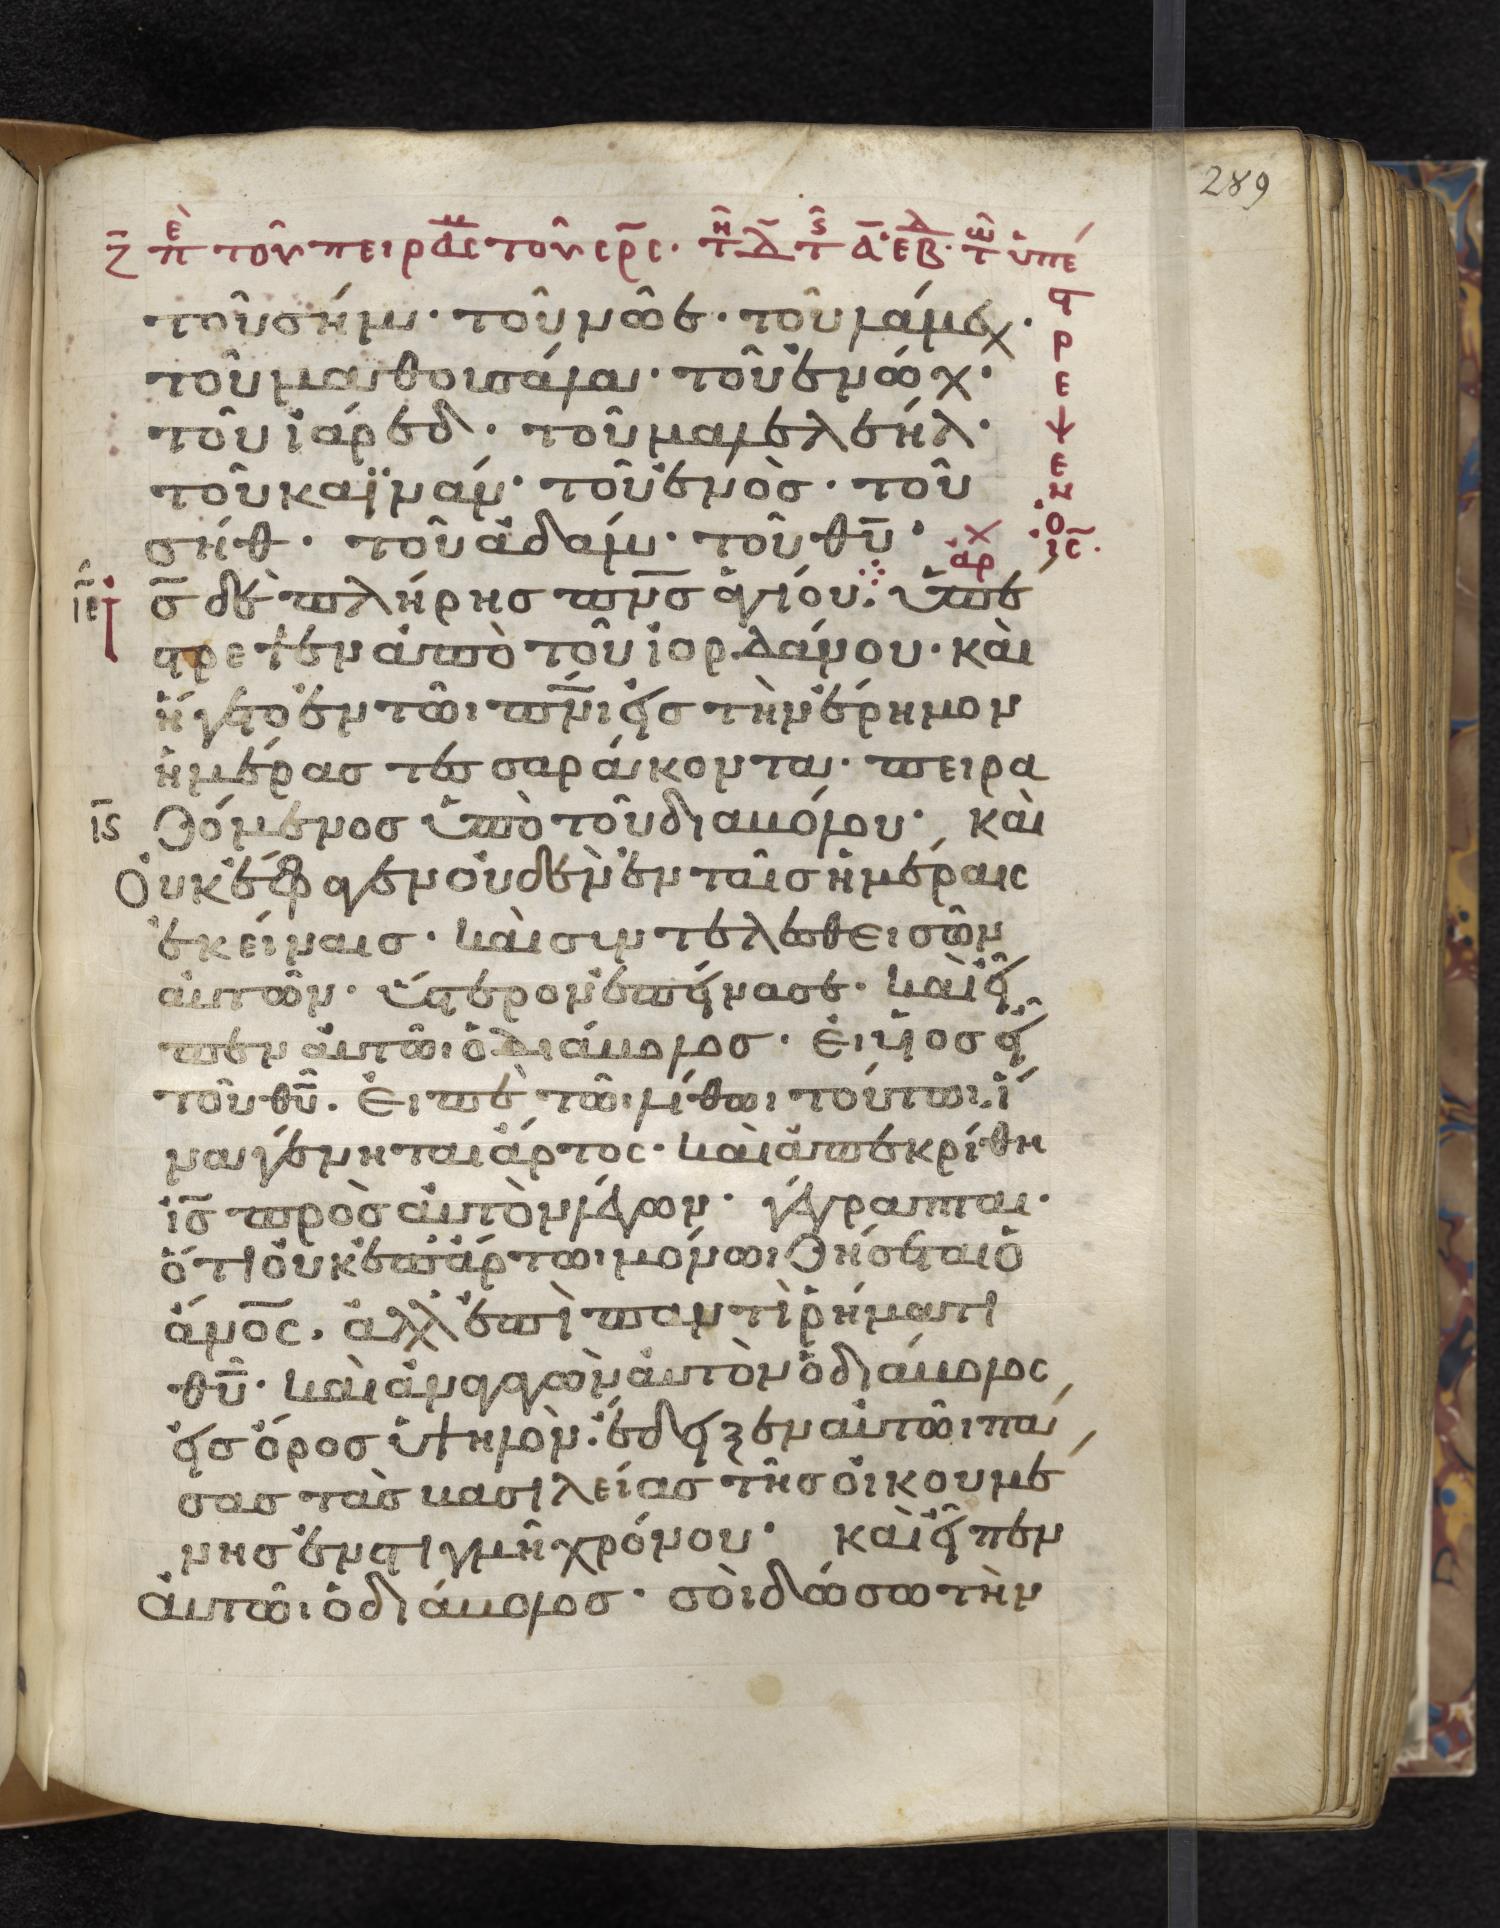 289
ζ πε τοῦ πειρας τοῦ σρς. τη Δ τς α. ε Β. τω ὑπέ
τοῦ σήμ· τοῦ νῶε· τοῦ λάμεχ·
τοῦ μαθουσάλα· τοῦ ἐνώχ·
τοῦ ἰάρεδ· τοῦ μαλελεήλ·
τοῦ καϊνάν· τοῦ ἐνὼσ· τοῦ
σήθ· τοῦ ἀδάμ· τοῦ θυ·
στρεψεν ὁ ις.
χ
αρ
ιε ισ δὲ πλήρησ πνσ ἁγίου· ὑπέ
στρεψεν ἀπὸ τοῦ ἰορδάνου· καὶ
ἤγετο ἐν τῶι πνι εἰσ τὴν ἔρημον
ἡμέρασ τεσσαράκοντα· πειρα
ις ζόμενοσ ὑπὸ τοῦ διαβόλου· καὶ
Οὐκ ἔφαγεν οὐδὲν ἐν ταῖσ ἡμέραισ
ἐκείναισ· καὶ συντελεσθεισῶν
αὐτῶν· ὕστερον ἐπείνασε· καὶ εἶ
πεν αὐτῶι ὁ διάβολοσ· εἰ υἱοσ εἶ
τοῦ θυ· Εἰπὲ τῶι λίθωι τούτωι ἵ
να γένηται ἄρτοσ· καὶ ἀπεκρίθη
ισ πρὸσ αὐτὸν λέγων· γέγραπται·
ὅτι οὐκ ἐπ' ἄρτωι μόνωι ζήσεται ὁ
ἄνοσ· ἀλλ' ἐπὶ παντὶ ῥήματι
θυ· καὶ ἀναγαγὼν αὐτὸν ὁ διάβολοσ
εἰσ ὄροσ ὑψηλὸν· ἔδειξεν αὐτῶι πά
σασ τὰσ βασιλείασ τῆσ οἰκουμέ
νησ ἐν στιγμῆ χρόνου· καὶ εἶπεν
αὐτῶι ὁ διάβολοσ· σοὶ δώσω τὴν